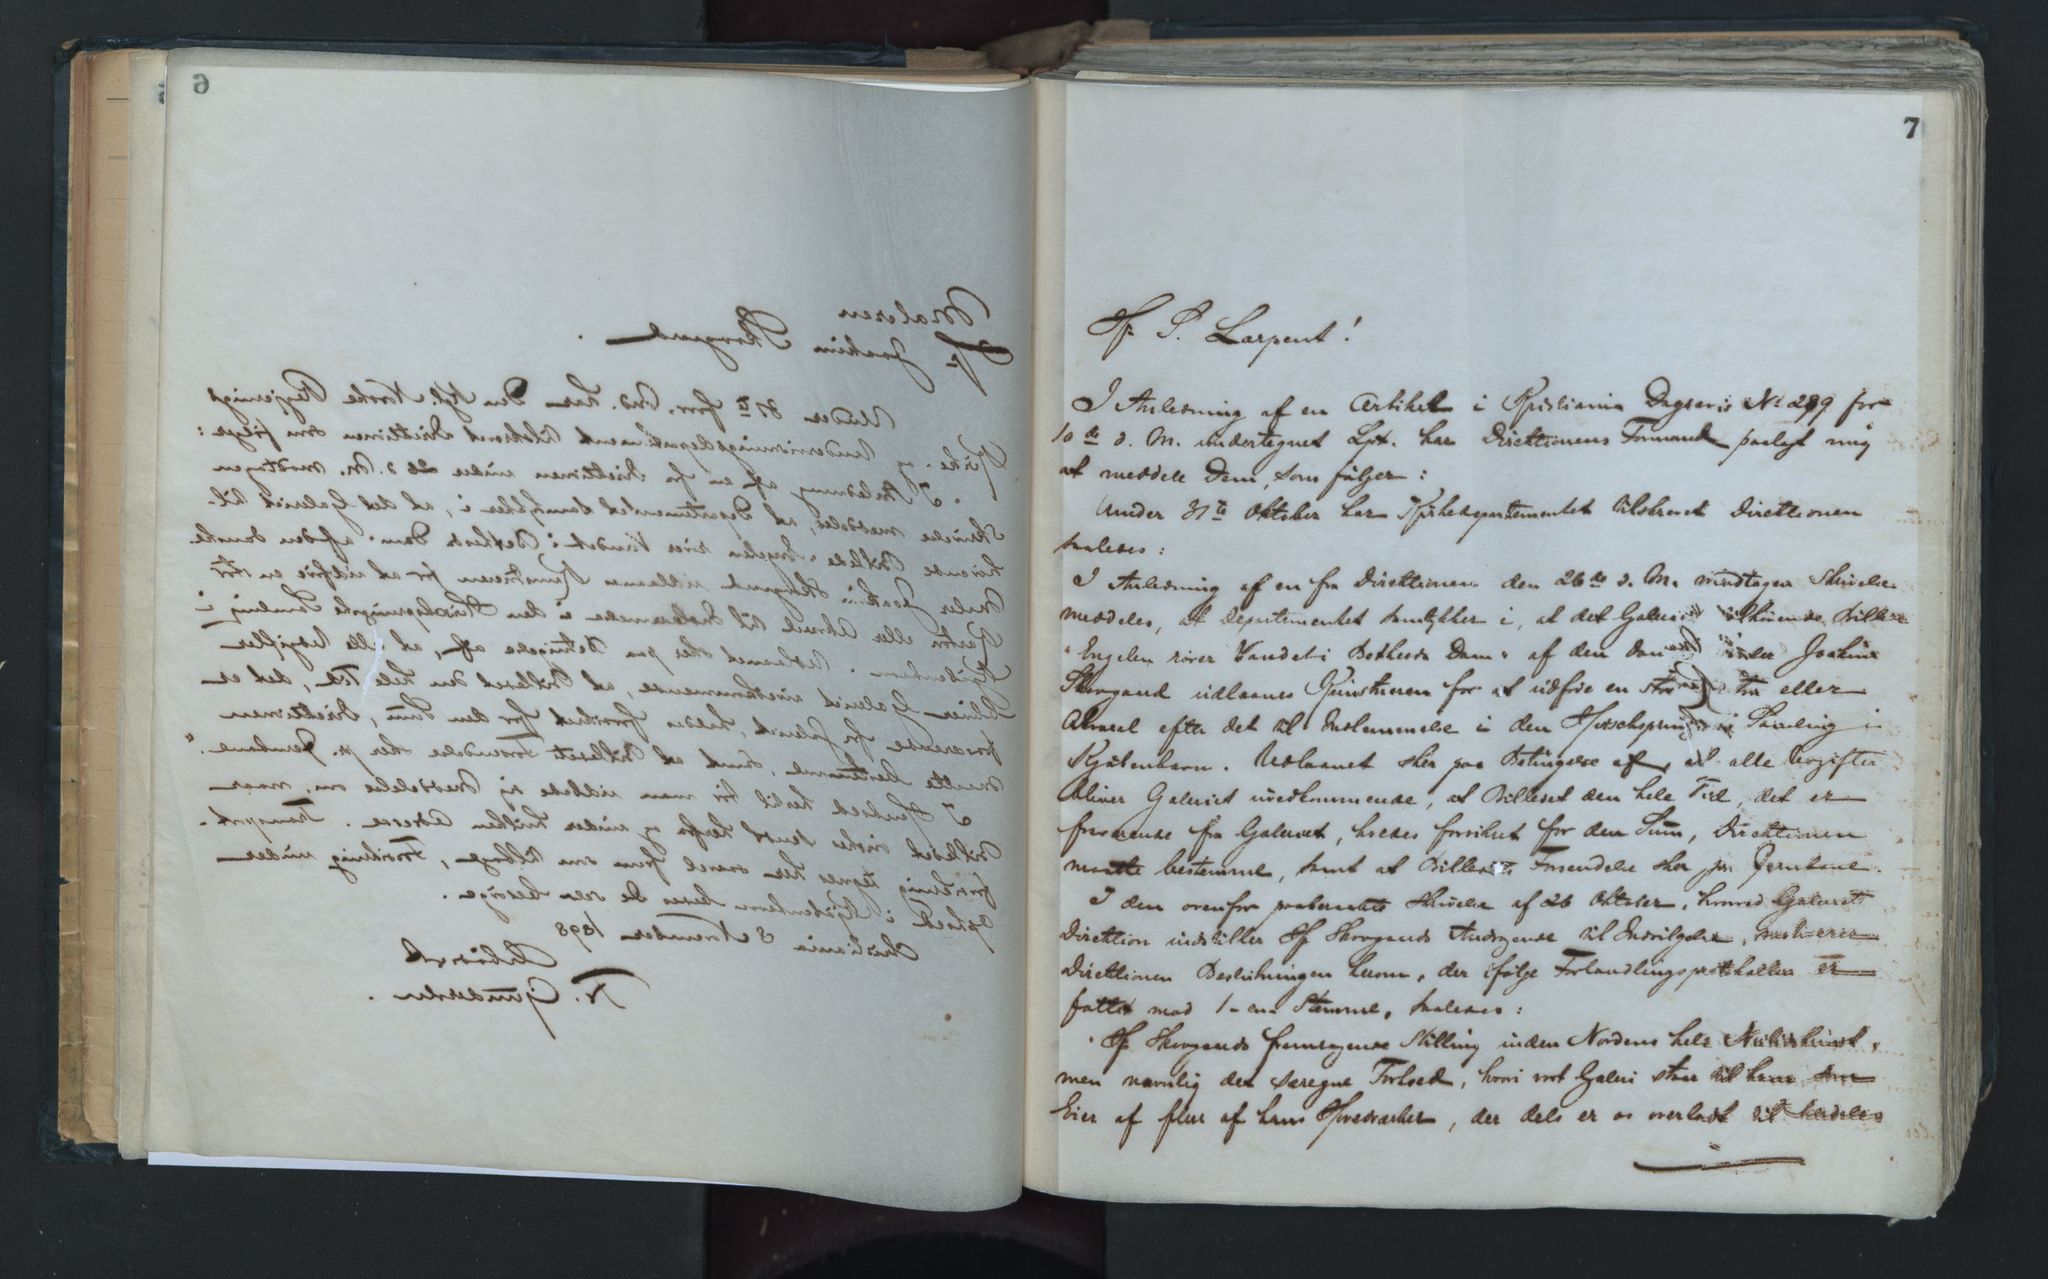 6
Maleren
Hr Joakim Skovgaard.
Under 31te forr. Md. har Den Kgl. Norske Regjerings
Kirke- og Undervisningsdepartement tilskrevet Direktionen som følger:
"I Anledning af en fra Direktionen under 26 d. M. modtagen
Skrivelse meddeles, at Departementet samtykker i, at det Galeriet til-
hørende Billede "Engelen rører Vandet i Bethesda Dam" af den danske
Maler Joakim Skovgaard udlaanes Kunstneren for at udføre en stor
Karton eller Akvarel til Indlemmelse i den Hirschsprungske Samling i
Kjøbenhavn. Udlaanet sker paa Betingelse af, at alle Udgifter
bliver Galeriet uvedkommende, at Billedet den hele Tid, det er
fraværende fra Galeriet, holdes forsikret for den Sum, Direktionen
maatte bestemme, samt at Billedets Forsendelse sker pr. Jernbane."
I Henhold hertil tør man udbede sig Meddelelse om, naar
Billedet ønskes sendt herfra og under hvilken Adresse. Transport-
forsikring tegnes her saavel frem som tilbage, Forsikring under
Ophold i Kjøbenhavn bedes De selv besørge.
Christiania 8 November 1898
Ærbødigst
Fr. Gundersen.
7
Hr S. Larpent!
I Anledning af en Artikel i Kristiania Dagsavis No 299 for
10de d. M. undertegnet Lpt. har Direktionens Formand paalagt mig
at meddele Dem, som følger:
Under 31te Oktober har Kirkedepartementet tilskrevet Direktionen
saaledes:
I Anledning af en fra Direktionen den 26de d. M. modtagen Skrivelse
meddeles, at Departementet samtykker i, at det Galeriet tilhørende Billede
"Engelen rører Vandet i Bethesda Dam" af den danske Maler Joakim
Skovgaard udlaanes Kunstneren for at udføre en stor eller
Akvarel efter det til Indlemmelse i den Hirschsprungske Samling i
Kjøbenhavn. Udlaanet sker paa Betingelse af, at alle Udgifter
bliver Galeriet uvedkommende, at Billedet den hele Tid, det er
fraværende fra Galeriet, holdes forsikret for den Sum, Direktionen
maatte bestemme, samt at Billedets Forsendelse sker pr. Jernbane.
I den ovenfor paaberaabte Skrivelse af 26 Oktober, hvorved Galeriets
Direktion indstiller Hr Skovgaards Andragende til Indvilgelse, motiverer
Direktionen Beslutningen herom, der ifølge Forhandlingsprotokollen er
fattet mod 1 - en Stemme, saaledes:
"Hr Skovgaards fremragende Stilling inden Nordens hele Nutidskunst,
men navnlig det særegne Forhold, hvori vort Galeri staar til ham som
Eier af flere af hans Hovedværker, der dels er os overladt til særdeles